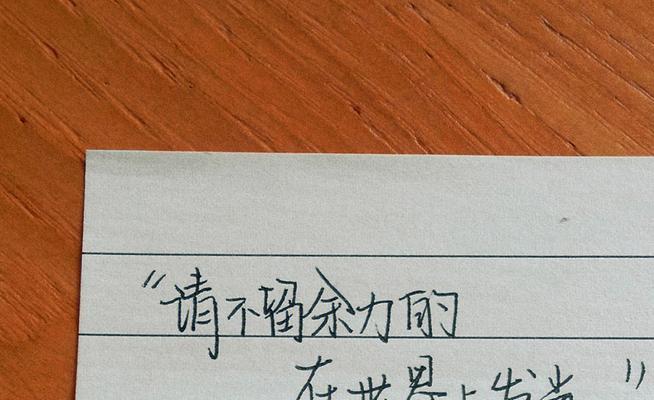 “请不留余力的
在世界上发光”